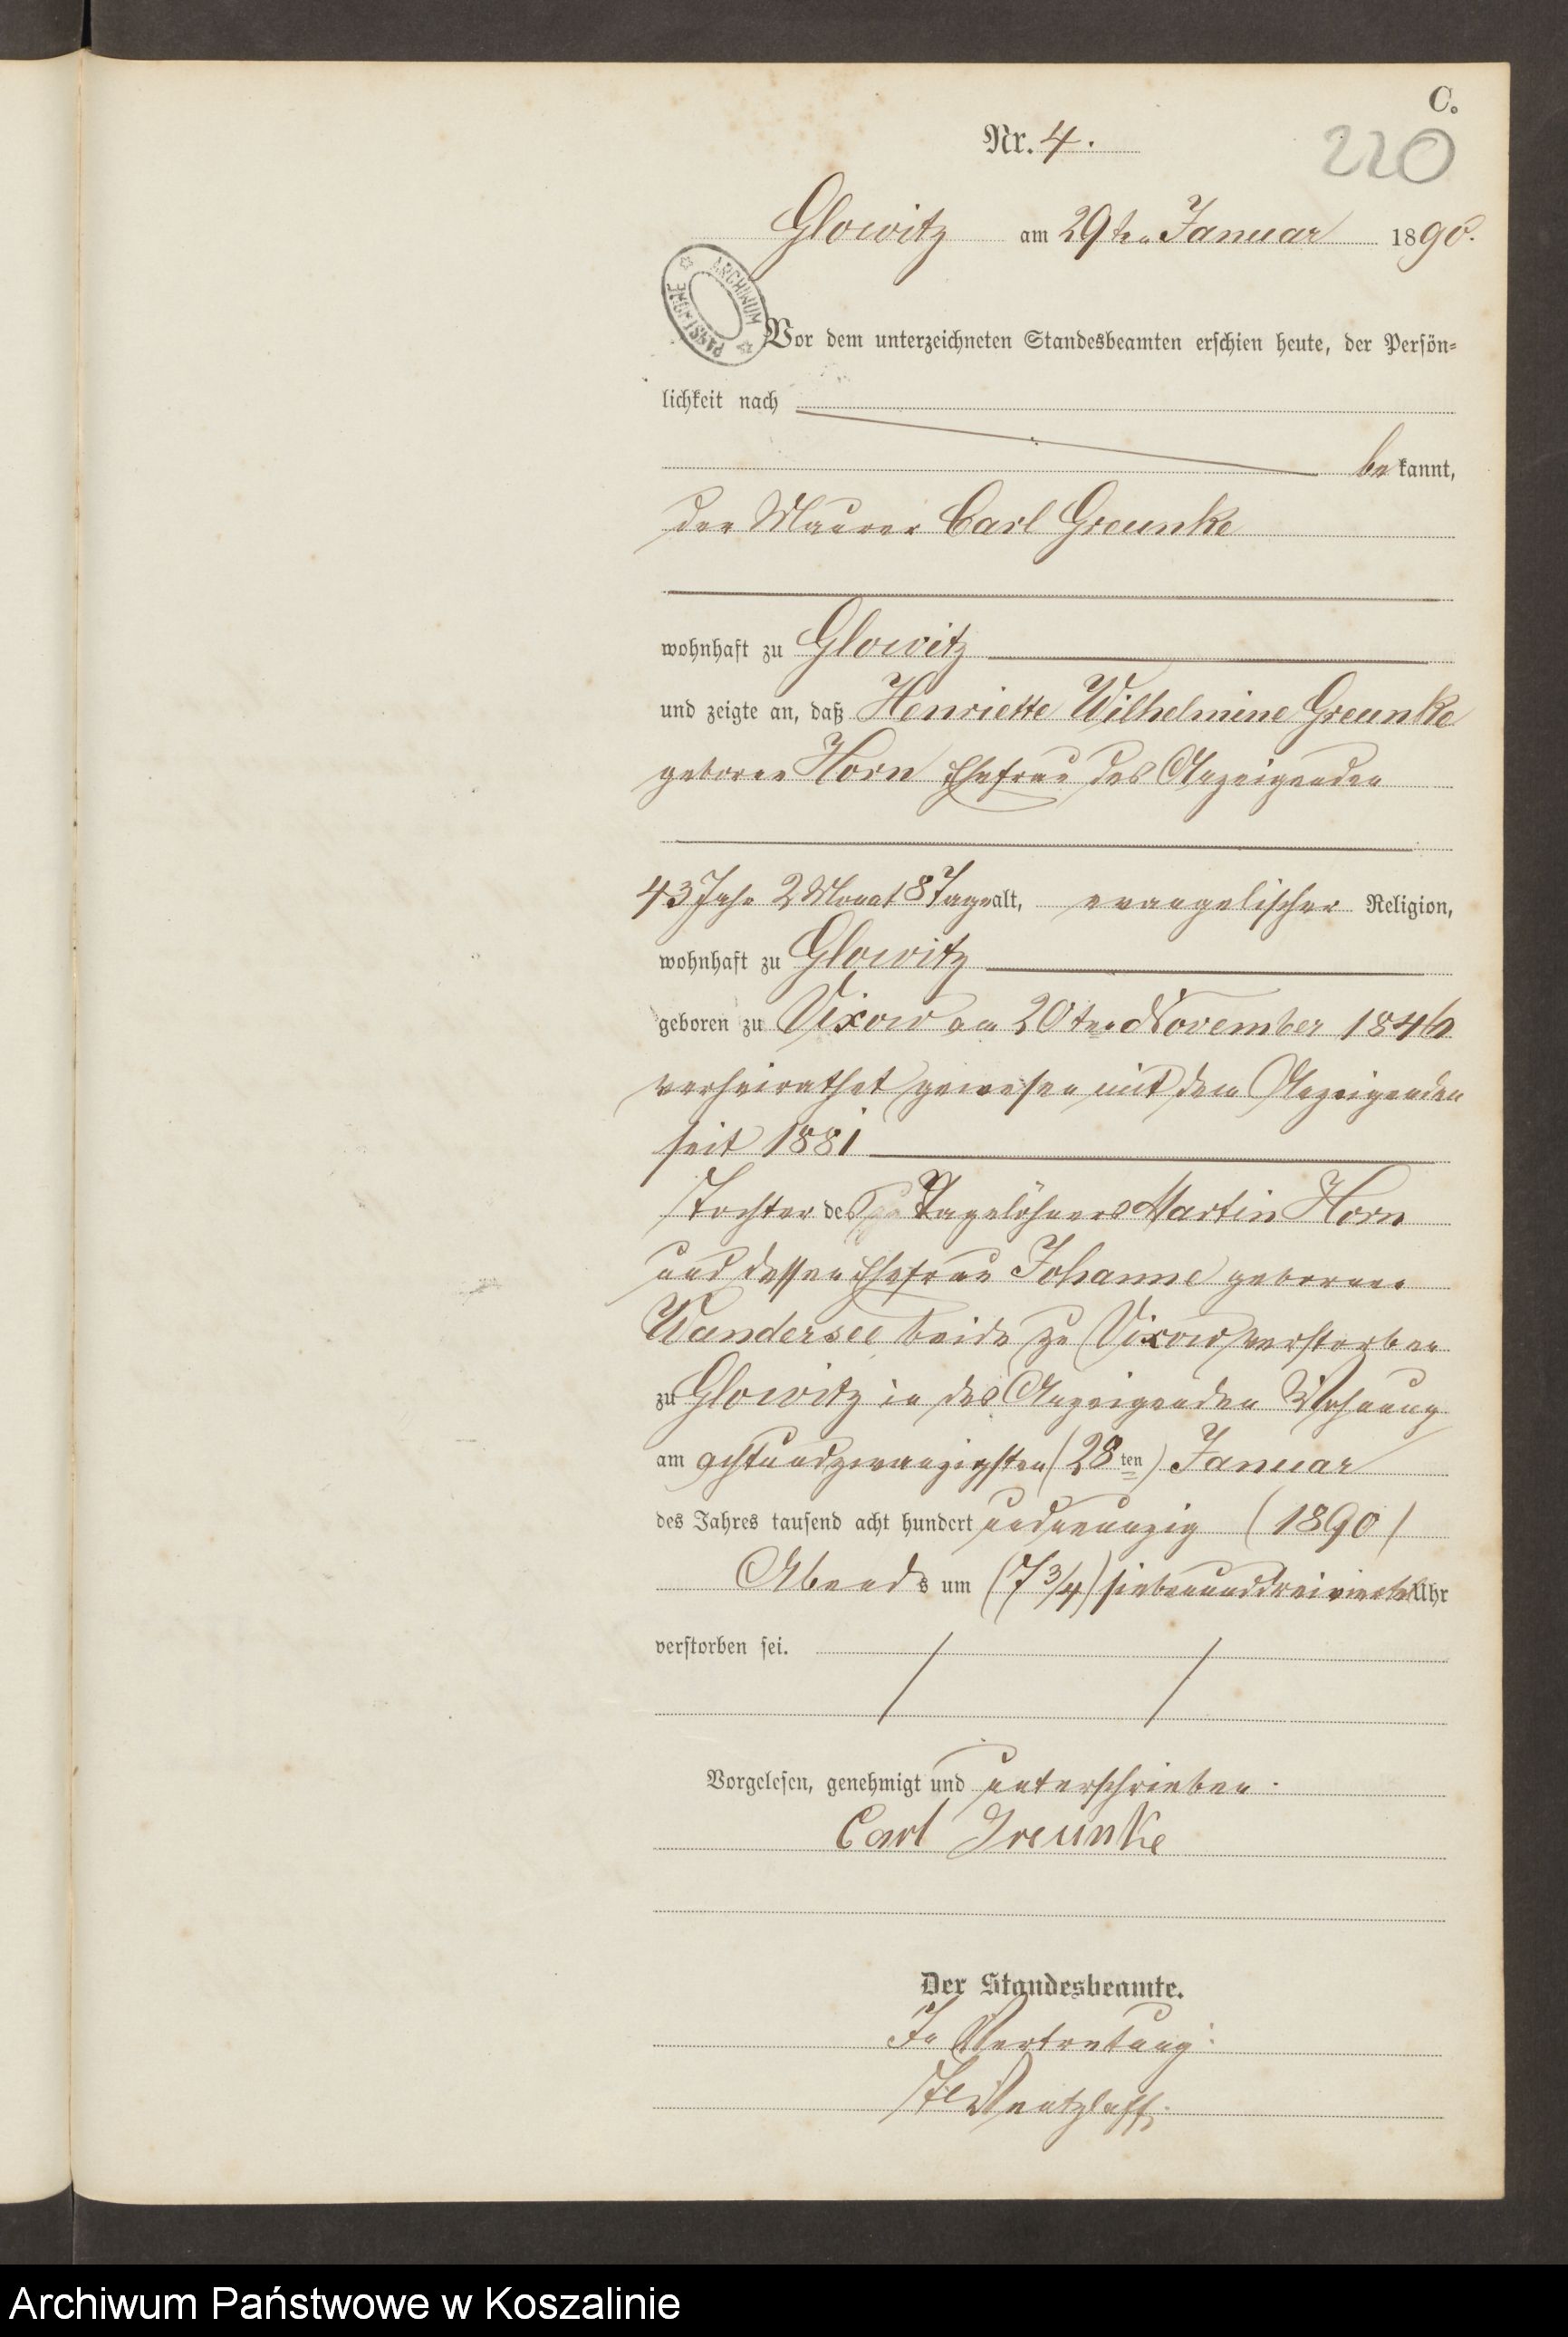 C.
Nr. 4.
220
Glowitz am 29ten Januar 1890.
ARCHIWUM PAŃSTWOWE
Vor dem unterzeichneten Standesbeamten erschien heute, der Persön-
lichkeit nach
bekannt,
der Maurer Carl Greunke
wohnhaft zu Glowitz
und zeigte an, daß Henriette Wilhelmine Greunke
geborne Horn Ehefrau des Anzeigenden
43 Jahr 2 Monat 8 Tage alt, evangelischer Religion,
wohnhaft zu Glowitz
geboren zu Vixow am 20ten November 1846
verheirathet gewesen mit dem Anzeigenden
seit 1881
Tochter des Tagelöhners Martin Horn
und dessen Ehefrau Johanne geborne
Wandersee beide zu Vixow verstorben
zu Glowitz in des Anzeigenden Wohnung
am achtundzwanzigsten (28ten) Januar
des Jahres tausend acht hundert undneunzig (1890)
Abends um (7 3/4) siebenunddreiviertel Uhr
verstorben sei.
Vorgelesen, genehmigt und unterschrieben.
Carl Greunke
Der Standesbeamte.
In Vertretung:
Wentzlaff.
Archiwum Państwowe w Koszalinie